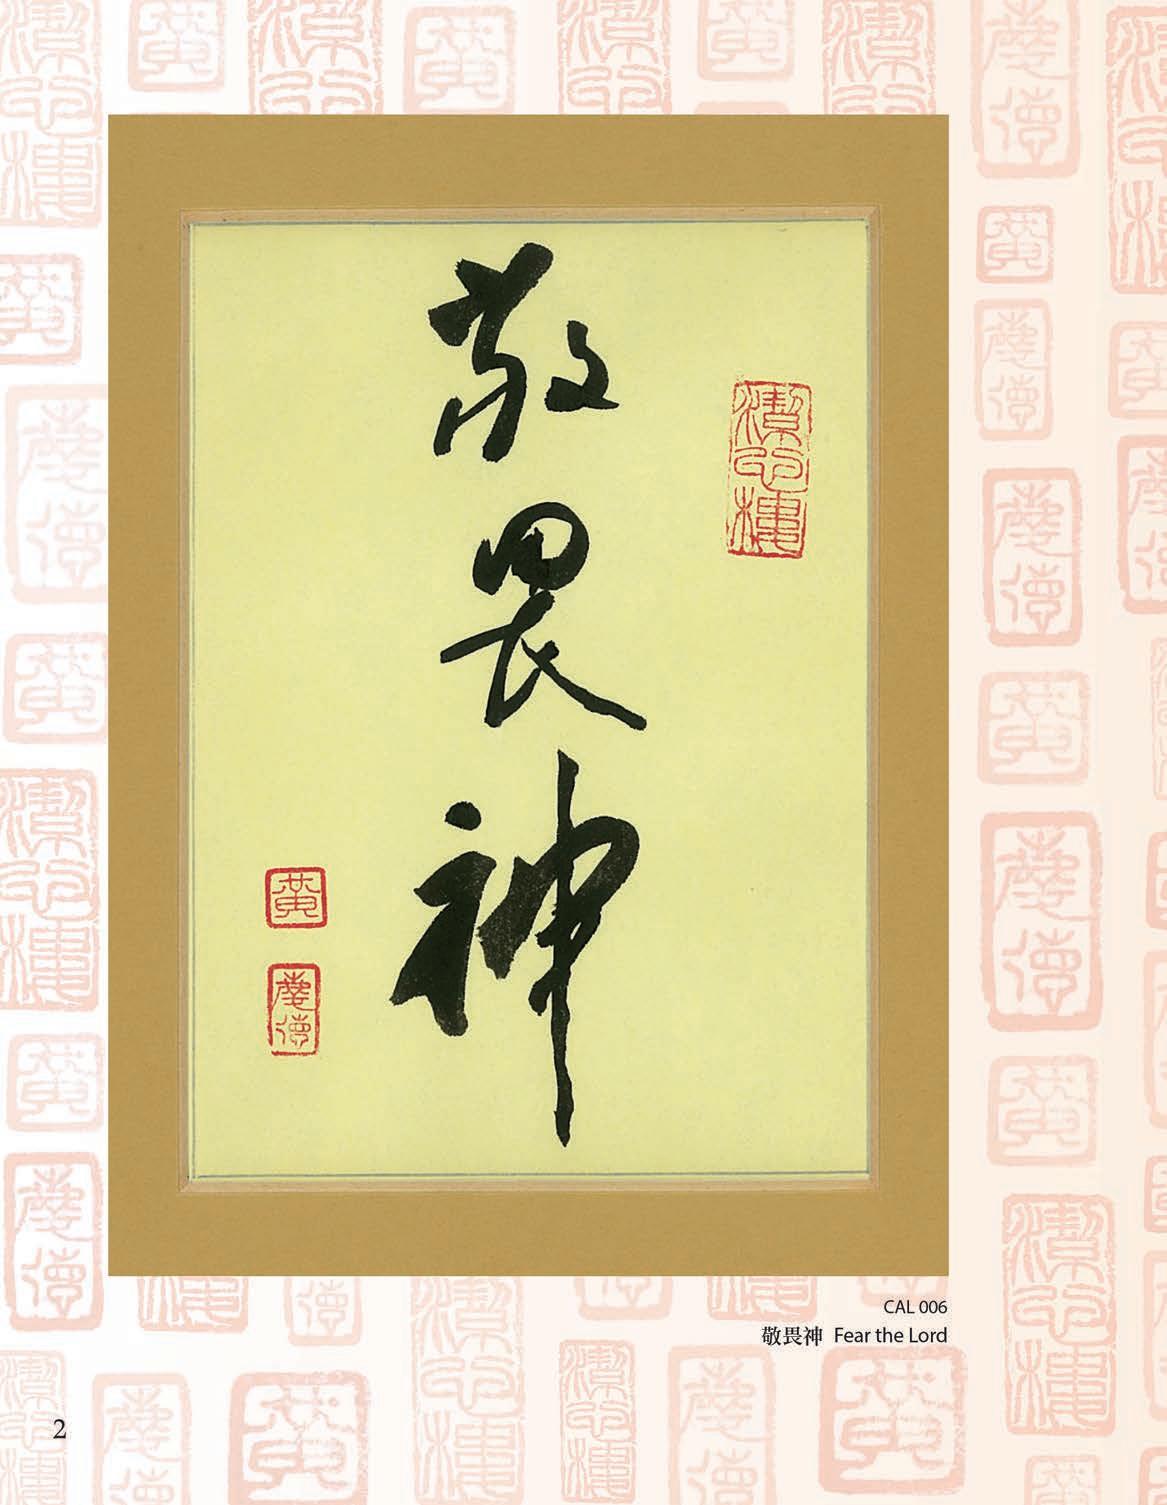 潔心樓
敬畏神
黃
慶德
CAL 006
敬畏神 Fear the Lord
2